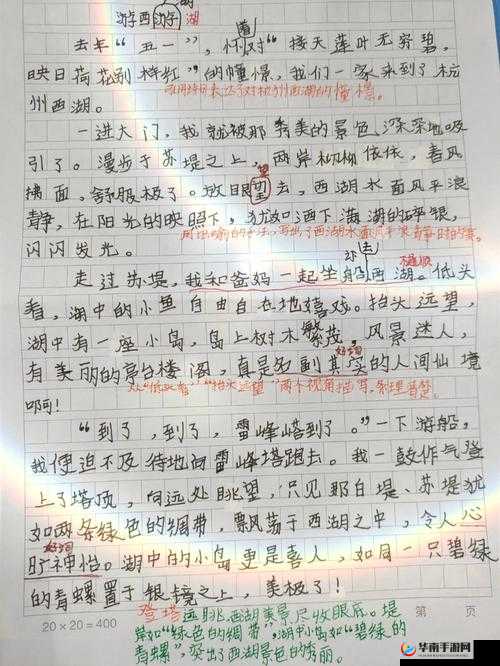 游西游湖
去年“五一”,怀着对“接天莲叶无穷碧,
映日荷花别样红”的憧憬,我们一家来到了杭
州西湖。
引用诗句表达了对杭州西湖的憧憬。
一进大门,我就被那秀美的景色深深地吸
引了。漫步于苏堤之上,两岸柳柳依依,春风
拂面,舒服极了。放眼望去,西湖水面风平浪
望
静,在阳光的映照下,犹如洒下满湖的碎银,
闪闪发光。
走过苏堤,我和爸妈一起坐船去西湖。低头
通顺
看,湖中的小鱼自由自在地嬉戏。抬头远望,
湖中有一座小岛,岛上树木繁茂,风景迷人,
好词
有美丽的亭台楼阁,真是名副其实的人间仙境
从“低头看”“抬头远望”两个视角描写,条理清楚。
啊!
“到了,到了,雷峰塔到了。”一下游船,
我便迫不及待地向雷峰塔跑去。我一鼓作气登
上了塔顶,向远处眺望,只见那白堤、苏堤犹
如两条绿色的绸带,飘荡于西湖之中,令人心
好词
旷神怡。湖中的小岛更是喜人,如同一只碧绿
的青螺置于银镜之上,美极了!
登塔远眺,西湖美景尽收眼底。堤
岸如“绿色的绸带”,湖中小岛如“碧绿的
青螺”,突出了西湖景色的秀丽。
20×20=400
第 页
华南手游网